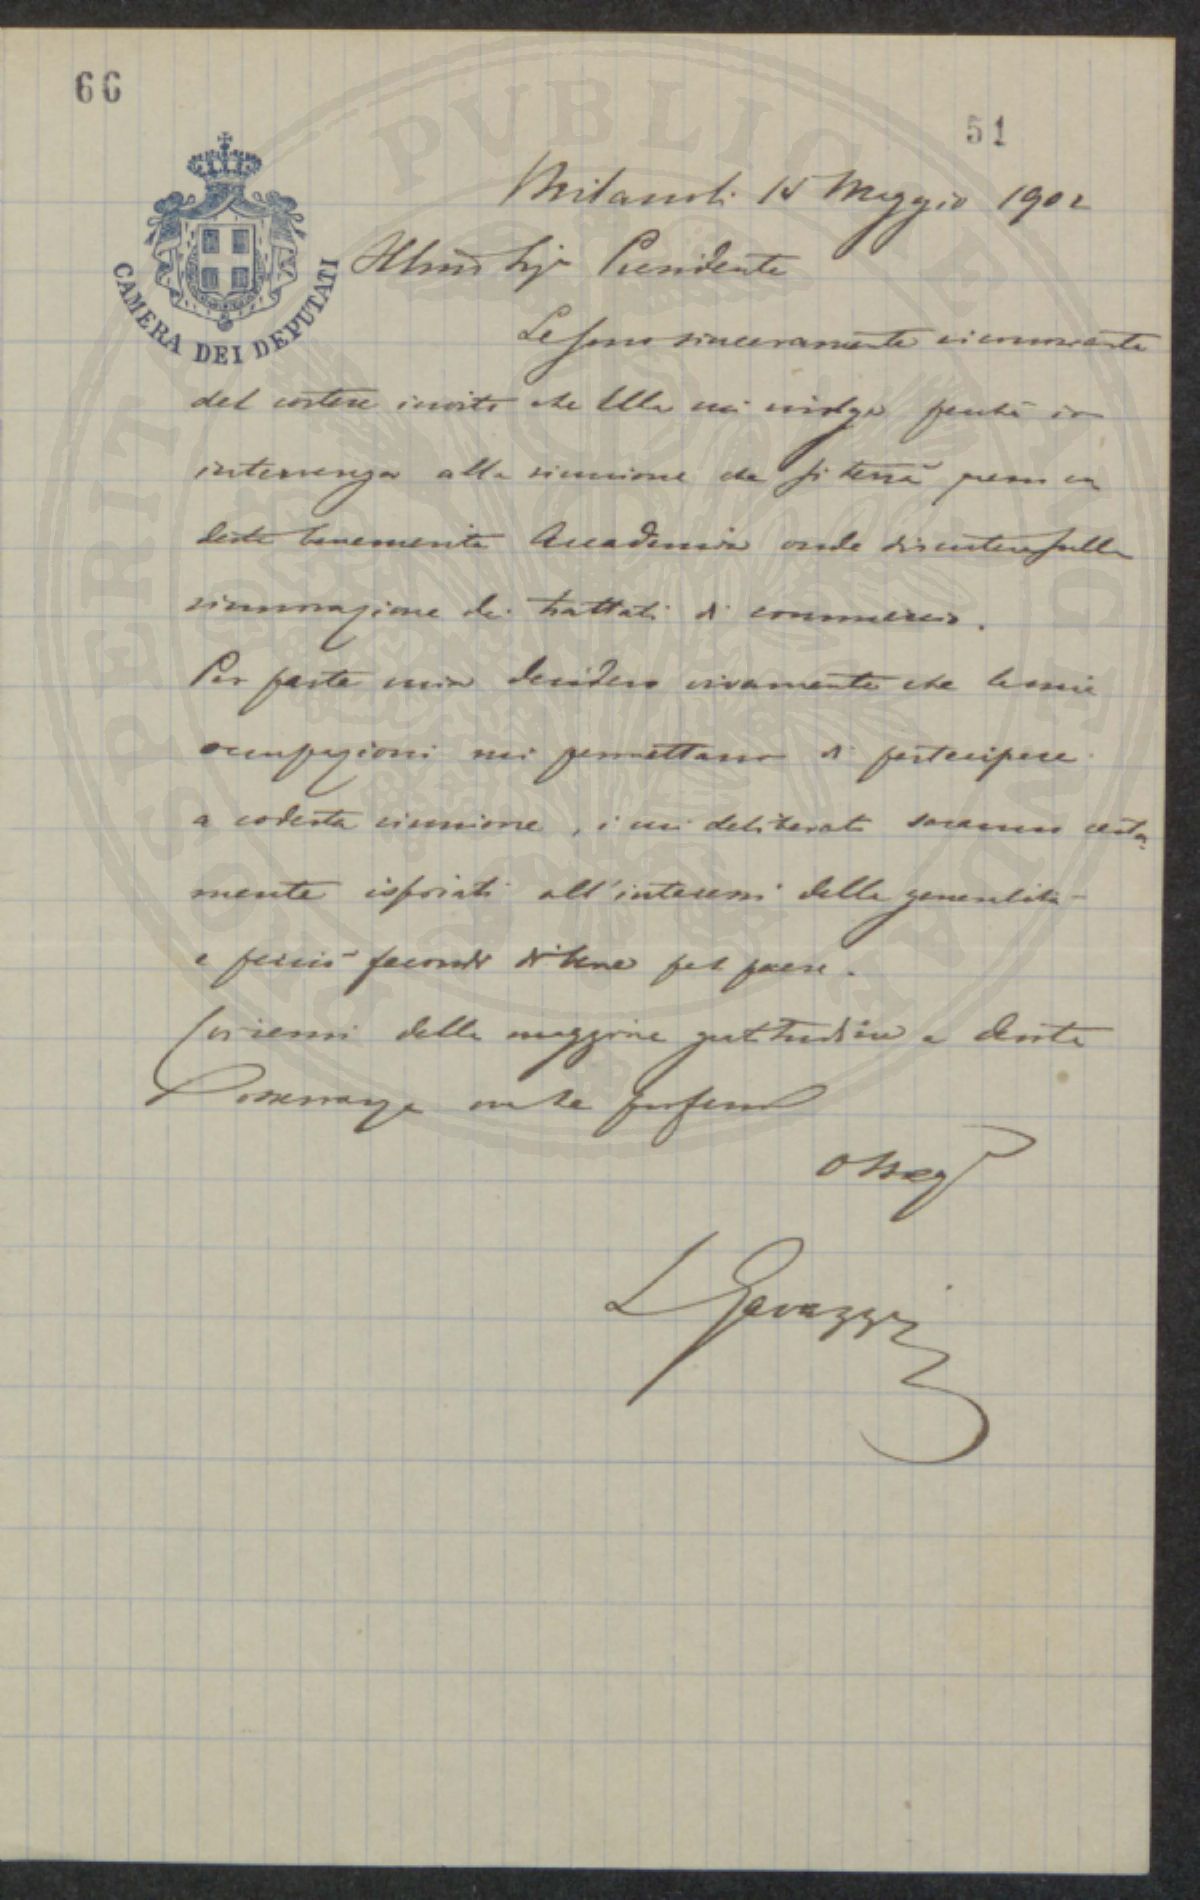 66
51
CAMERA DEI DEPUTATI
Milano li 15 Maggio 1902
Illmo Sigr Presidente
Le sono sinceramente riconoscente
del cortese invito che Ella mi rivolge perchè io
intervenga alla riunione che si terrà presso co
desta benemerita Accademia onde discutere sulla
rinnovazione dei trattati di commercio.
Per parte mia desidero vivamente che le mie
occupazioni mi permettano di partecipare
a codesta riunione, i cui deliberati saranno certa-
mente ispirati all'interessi della generalità
e perciò fecondi di bene pel paese.
Coi sensi della maggiore gratitudine e devota
osservanza me le professo
Obbligmo
L Gavazzi
PUBLICAE FLORENTINA PROSPERITATI AUGENDAE